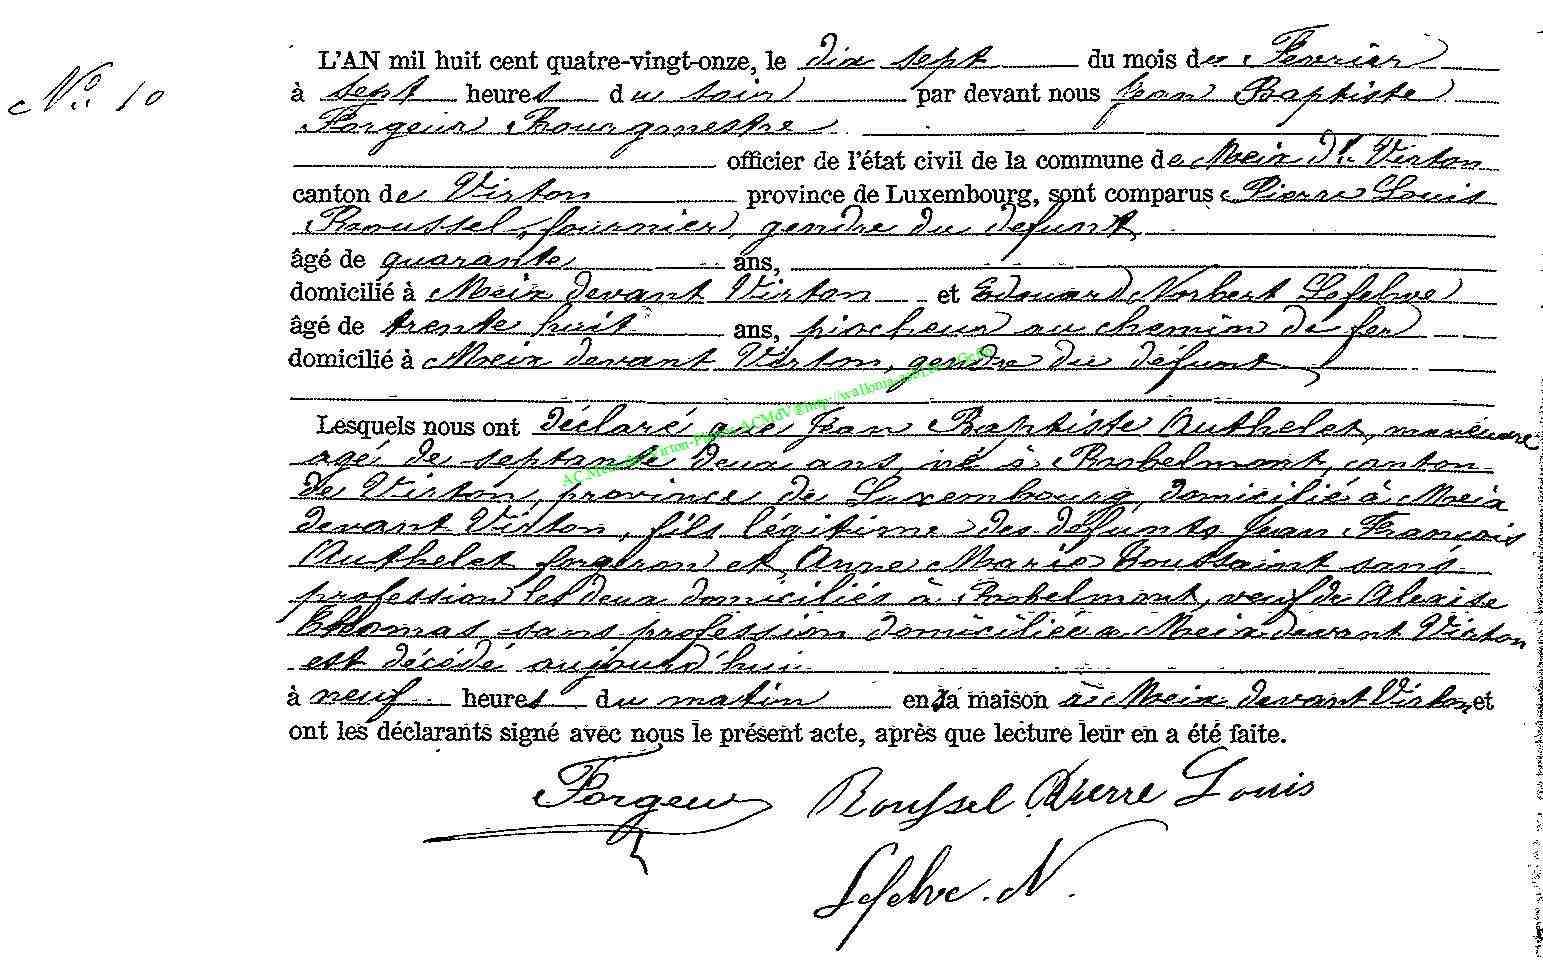 No. 10
L'AN mil huit cent quatre-vingt-onze, le dix sept du mois de Fevrier
à sept heures du soir par devant nous Jean Baptiste
Forgeur Bourgmestre
officier de l'état civil de la commune de Meix dt Virton
canton de Virton province de Luxembourg, sont comparus Pierre Louis
Roussel, fournier, gendre du defunt
âgé de quarante ans,
domicilié à Meix devant Virton et Edouard Norbert Lefebve
âgé de trente huit ans, piocheur au chemin de fer
domicilié à Meix devant Virton, gendre du défunt
Lesquels nous ont déclaré que Jean Baptiste Authelet, manœuvre
agé de septante deux ans, né à Robelmont, canton
de Virton, province de Luxembourg, domicilié à Meix
devant Virton, fils légitime des défunts Jean François
Authelet forgeron et Anne Marie Toussaint sans
profession les deux domiciliés à Robelmont, veuf de Alexise
Thomas sans profession domiciliée a Meix devant Virton
est décédé aujourd'hui
à neuf heures du matin en sa maison à Meix devant Virton et
ont les déclarants signé avec nous le présent acte, après que lecture leur en a été faite.
Forgeur Roussel Pierre Louis
Lefebve. N.